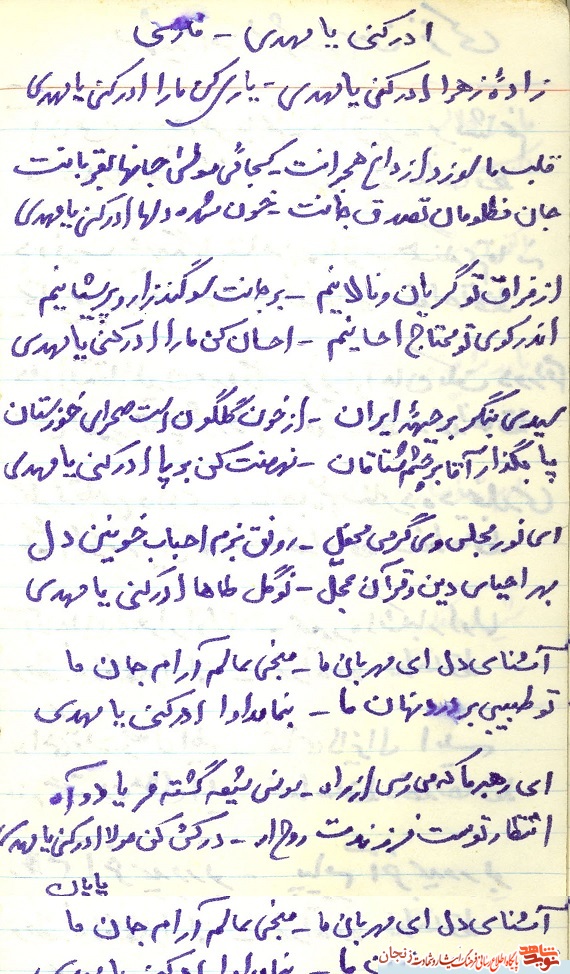 ادرکنی یا مهدی - فارسی
زادهٔ زهرا ادرکنی یا مهدی - یاری کن ما را ادرکنی یا مهدی
قلب ما سوزد از داغ هجرانت - کجائی مولی جانها بقربانت
جان مظلومان تصدق جانت - خون شده دلها ادرکنی یا مهدی
از فراق تو گریان و نالانیم - بر جانت سوگند زار و پریشانیم
اندر کوی تو محتاج احسانیم - احسان کن ما را ادرکنی یا مهدی
سیدی بنگر بر جبههٔ ایران - از خون گلگون است صحرای خوزستان
پا بگذار آقا بر چشم مشتاقان - نهضت کن بر پا ادرکنی یا مهدی
ای نور مجلس وی گرمی محفل - رونق بزم احباب خونین دل
بهر احیای دین و قرآن عجل - نوگل طاها ادرکنی یا مهدی
آشنای دل ای مهربانی ما - منجی عالم آرام جان ما
تو طبیبی بر درد نهان ما - بنما مداوا ادرکنی یا مهدی
ای رهبر ما که می رسی از راه - مونس شیعه گشته فریاد و آه
انتظار توست فرزندت روح اله - درکش کن مولا ادرکنی یا مهدی
پایان
آشنای دل ای مهربانی ما - منجی عالم آرام جان ما
ما - بنما مداوا ادرکنی یا مهدی
نوید شاهد
پایگاه اطلاع رسانی فرهنگ ایثار و شهادت زنجان